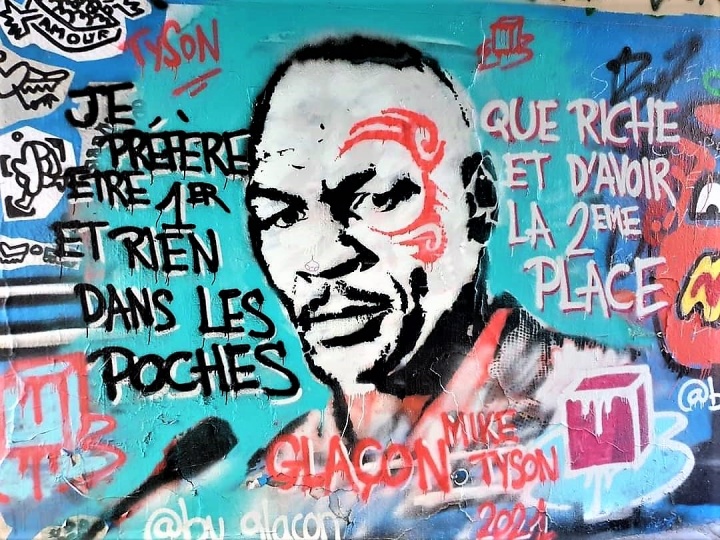 AMOUR
TYSON
JE
PRÉFÈRE
ETRE 1ER
ET RIEN
DANS LES
POCHES
QUE RICHE
ET D'AVOIR
LA 2EME
PLACE
GLAÇON
MIKE
TYSON
2021
@by_glacon